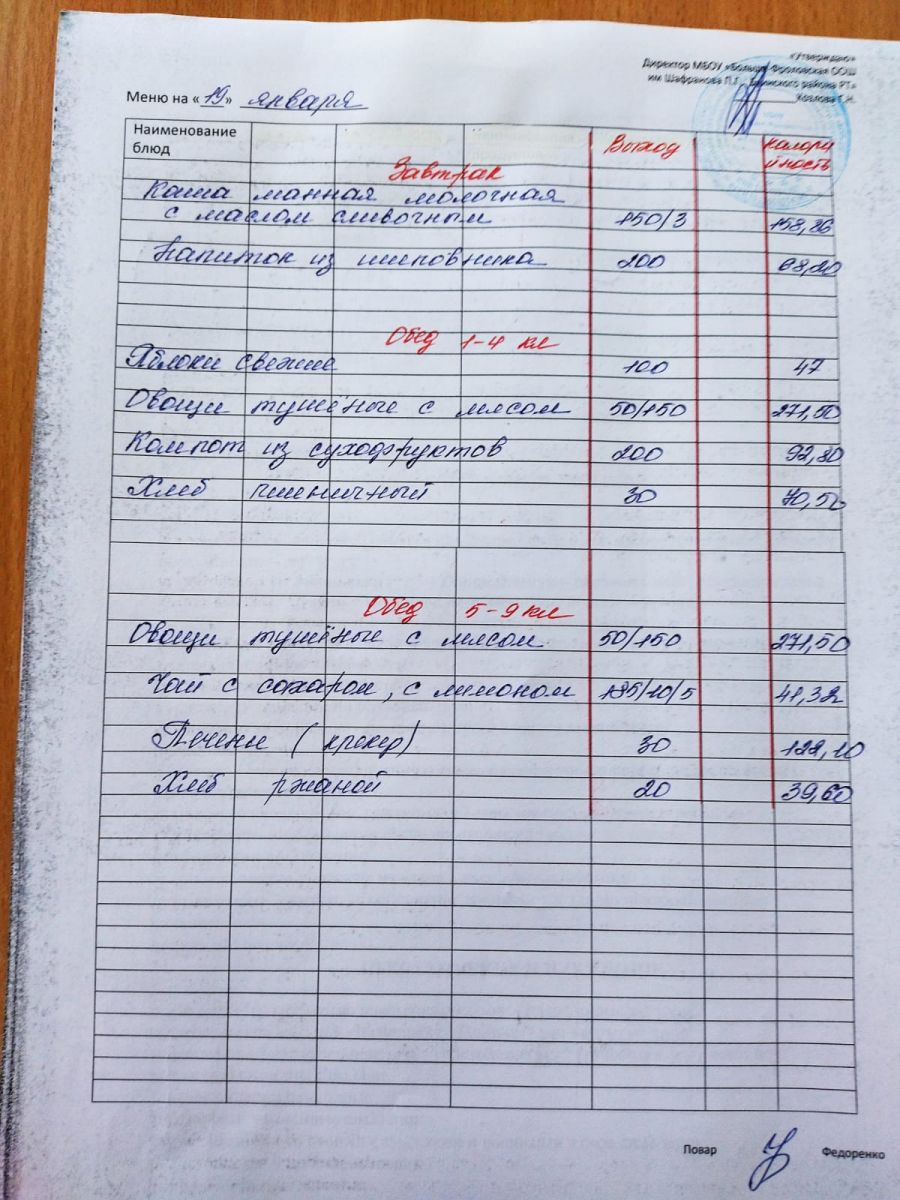 «Утверждаю»
Директор МБОУ «Больше-Фроловская ООШ
им Шафранова П.Г. Буинского района РТ»
Козлова Г.Н.
Меню на «19» января
Наименование блюд Выход калорийность
Завтрак
Каша манная молочная
с маслом сливочным 150/3 158,86
Напиток из шиповника 200 68,20
Обед 1-4 кл
Яблоки свежие 100 47
Овощи тушёные с мясом 50/150 271,50
Компот из сухофруктов 200 92,80
Хлеб пшеничный 30 70,50
Обед 5-9 кл
Овощи тушёные с мясом 50/150 271,50
Чай с сахаром, с лимоном 185/10/5 41,32
Печенье (крекер) 30 122,10
Хлеб ржаной 20 39,60
Повар Федоренко